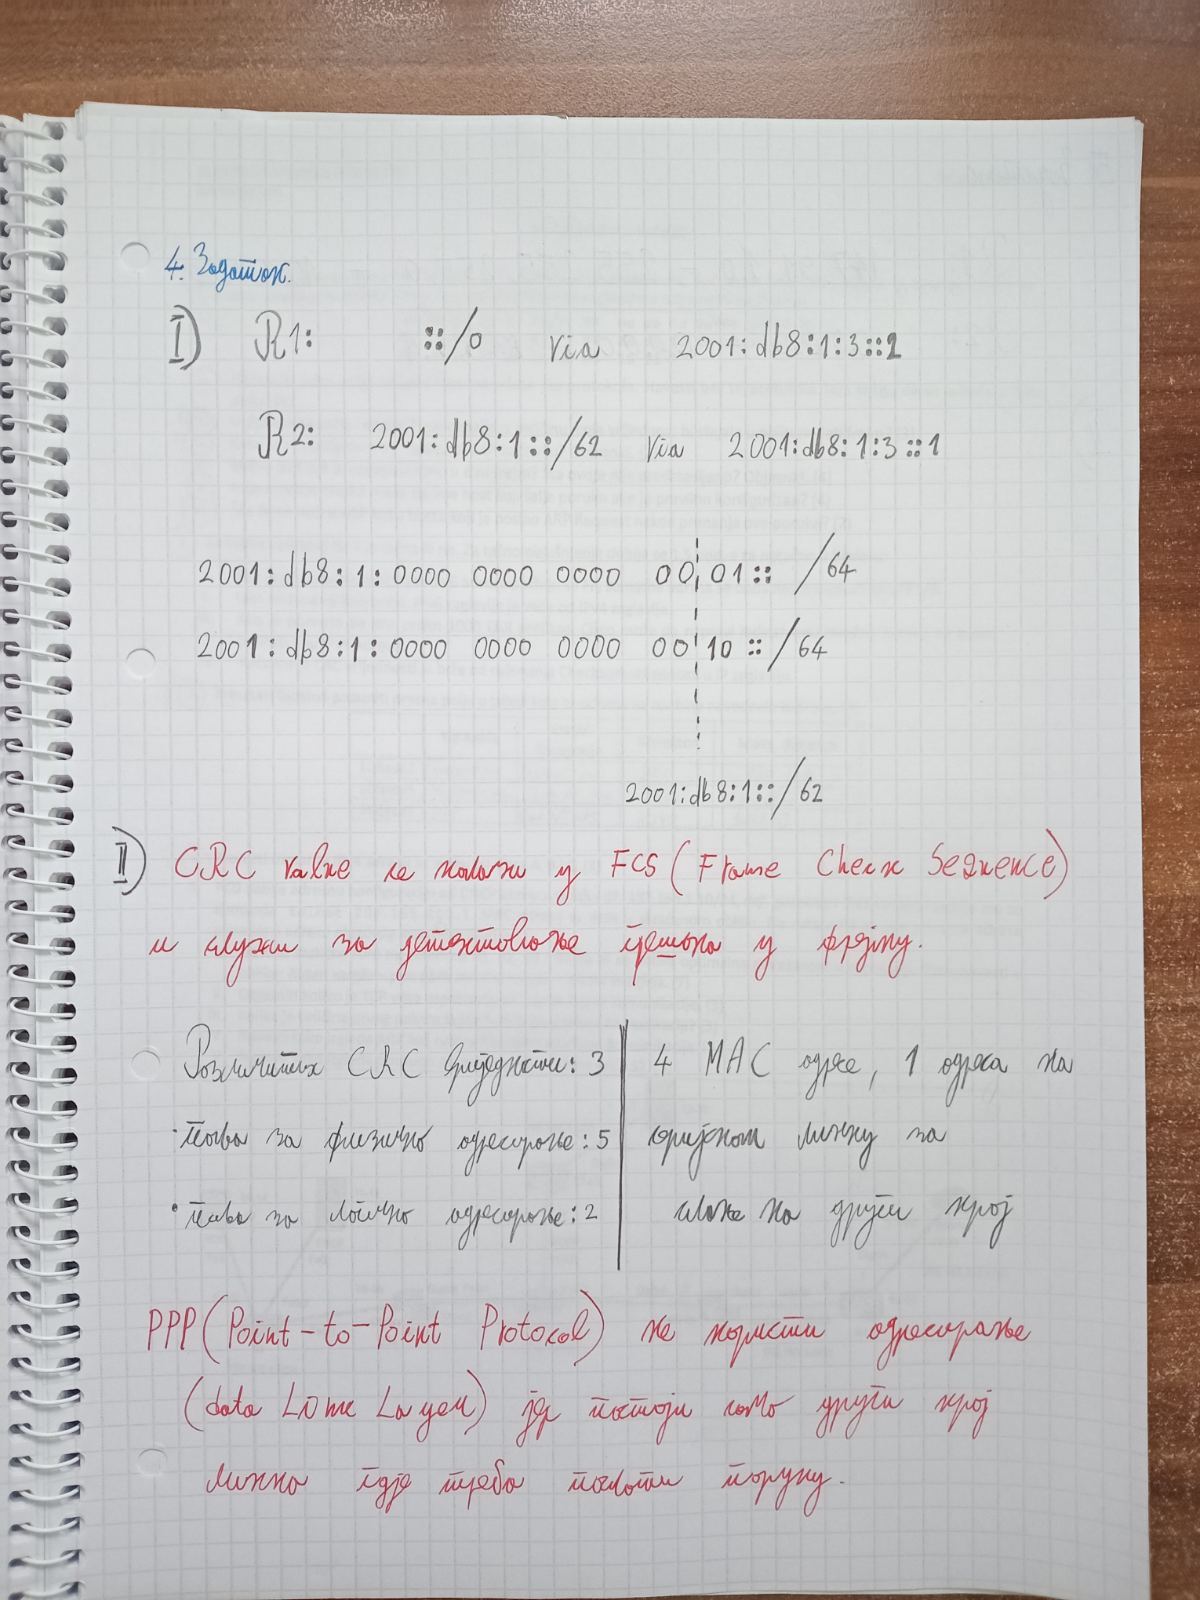 4. Задатак.
I) R1: ::/0 via 2001:db8:1:3::2
R2: 2001:db8:1::/62 via 2001:db8:1:3::1
2001:db8:1:0000 0000 0000 00 01:: /64
2001:db8:1:0000 0000 0000 00 10 ::/64
2001:db8:1::/62
II) CRC value се налази у FCS (Frame Check Sequence)
и служи за детектовање грешака у фрејму.
Различитих CRC вриједности: 3 | 4 MAC адресе, 1 адреса на
· поља за физичко адресирање: 5 | сријском линку за
· поља за логичко адресирање: 2 | слање на други крај
PPP (Point-to-Point Protocol) не користи адресирање
(data Link Layer) јер постоји само други крај
линка гдје треба послати поруку.